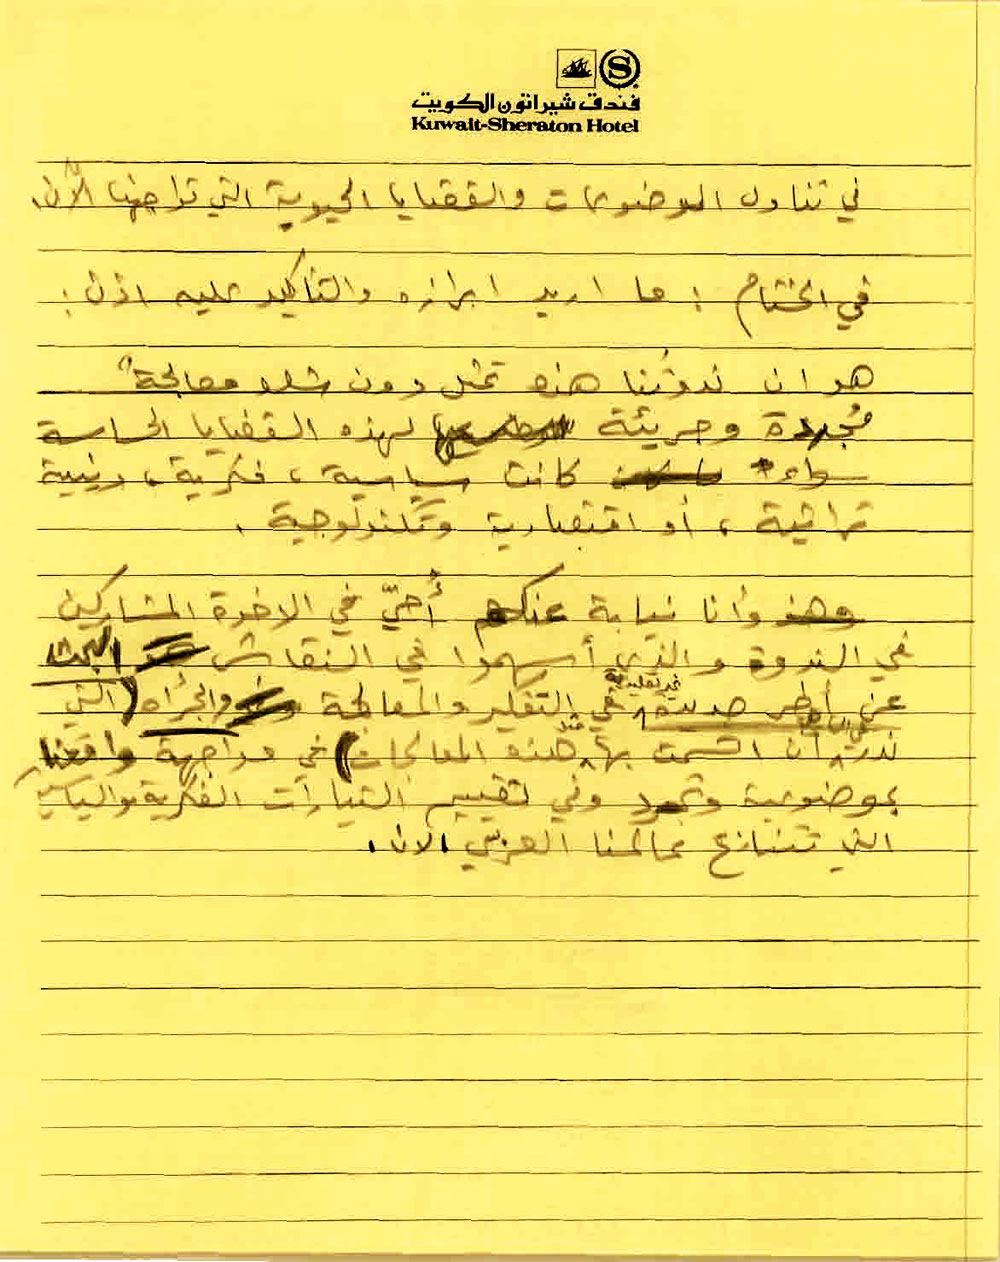 فندق شيراتون الكويت
Kuwait-Sheraton Hotel
في تناول الموضوعات والقضايا الحيوية التي تواجهنا الآن.
في الختام : ما اريد ابرازه والتأكيد عليه اذن :
هو ان ندوتنا هذه تمثل دون شك معالجة
مُجددة وجريئة لهذه القضايا الحساسة
سواء كانت سياسية ، فكرية ، دينية
تراثية ، أو اقتصادية وتكنولوجية .
وأنا نيابة عنكم أُحيّي في الاخوة المشاركين
في الندوة والذين أسهموا في النقاش البحث
غير تقليدية
عن أطر جديدة في التفكير والمعالجة والجرأه (التي
ندر أن اتسمت بها هذه المعالجات) في مواجهة واقعنا
بموضوعية وتجرد وفي تقييم التيارات الفكرية والسياسية
التي تتنازع عالمنا العربي الان .